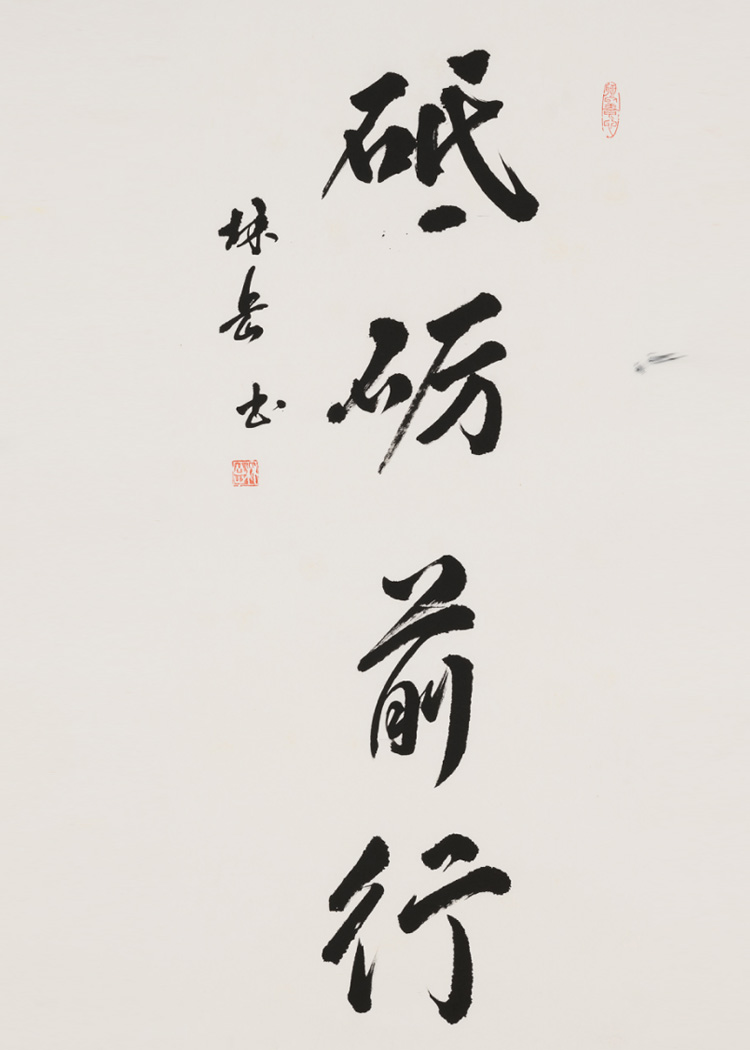 砥砺前行
林岳书